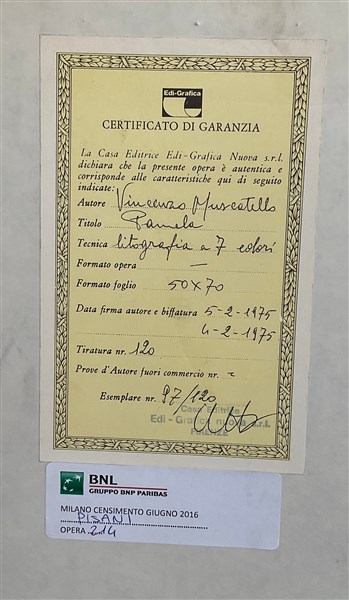 Edi-Grafica
CERTIFICATO DI GARANZIA
La Casa Editrice Edi-Grafica Nuova s.r.l.
dichiara che la presente opera è autentica e
corrisponde alle caratteristiche qui di seguito
indicate:
Autore Vincenzo Muscatello
Titolo Pamela
Tecnica litografia a 7 colori
Formato opera —
Formato foglio 50x70
Data firma autore e biffatura 5-2-1975
4-2-1975
Tiratura nr. 120
Prove d'Autore fuori commercio nr. -
Esemplare nr. 97/120
Casa Editrice
Edi - Grafica nuova s.r.l.
FIRENZE
BNL
GRUPPO BNP PARIBAS
MILANO CENSIMENTO GIUGNO 2016
PISANI
OPERA 214